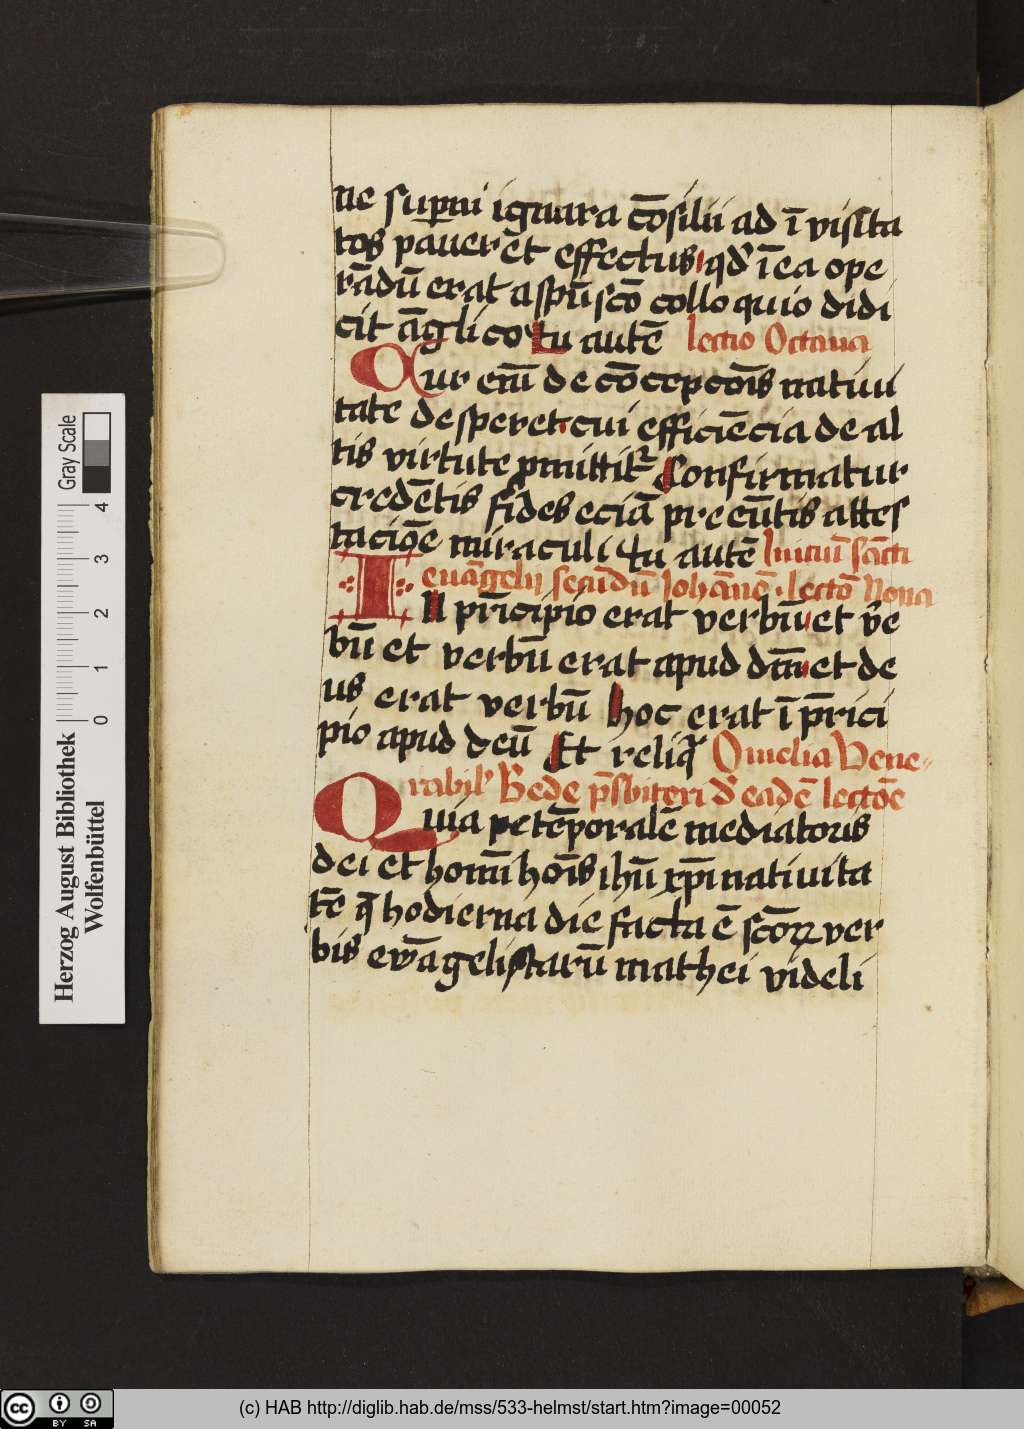 ne sup̲ni ignara cōsilii ad ī visita
tos paverēt effectus qd̕ ī ea ope
rādū erat a spū scō colloquio didi
cit āgelico tu autē lectio Octaua
Cur em̄ de cōcepcōis natiui
tate desperet cui efficiēcia de al
tis virtute ꝓmittit᷑ Confirmatur
credētis fides eciā preeūtis attes
tacioē miraculi tu autē Iniciū sācti
euāgelij secūdū Iohānē · lectō Nona
IN prīcipio erat verbū et v̄e
bū et verbū erat apud dm̄ et de
us erat verbū hoc erat ī p̄rici
pio apud deū Et reliq̄ Omelia Vene-
rabil᷒ Bede p̄sbiteri d̕ eadē lectōe
Quia tēporalē mediatoris
dei et homī hoīs ihū xp̄i natiuita
tē q̄ hodierna die facta ē scōꝝ ver
bis ewāgelistarū mathei videli
Gray Scale
0 1 2 3 4
Herzog August Bibliothek
Wolfenbüttel
cc BY SA
(c) HAB http://diglib.hab.de/mss/533-helmst/start.htm?image=00052